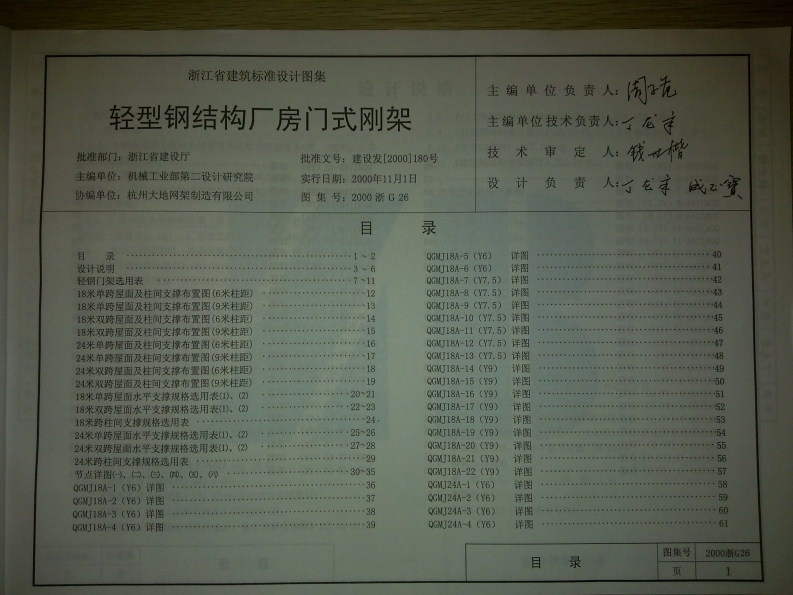 浙江省建筑标准设计图集
轻型钢结构厂房门式刚架
批准部门：浙江省建设厅
主编单位：机械工业部第二设计研究院
协编单位：杭州大地网架制造有限公司
批准文号：建设发[2000]180号
实行日期：2000年11月1日
图 集 号：2000 浙 G 26
主 编 单 位 负 责 人：
主编单位技术负责人：丁龙章
技 术 审 定 人：钱世楷
设 计 负 责 人：丁龙章
目 录
目 录 1～2
设计说明 3～6
轻钢门架选用表 7～11
18米单跨屋面及柱间支撑布置图(6米柱距) 12
18米单跨屋面及柱间支撑布置图(9米柱距) 13
18米双跨屋面及柱间支撑布置图(6米柱距) 14
18米双跨屋面及柱间支撑布置图(9米柱距) 15
24米单跨屋面及柱间支撑布置图(6米柱距) 16
24米单跨屋面及柱间支撑布置图(9米柱距) 17
24米双跨屋面及柱间支撑布置图(6米柱距) 18
24米双跨屋面及柱间支撑布置图(9米柱距) 19
18米单跨屋面水平支撑规格选用表⑴、⑵ 20~21
18米双跨屋面水平支撑规格选用表⑴、⑵ 22~23
18米跨柱间支撑规格选用表 24
24米单跨屋面水平支撑规格选用表⑴、⑵ 25~26
24米双跨屋面水平支撑规格选用表⑴、⑵ 27~28
24米跨柱间支撑规格选用表 29
节点详图㈠、㈡、㈢、㈣、㈤、㈥ 30~35
QGMJ18A-1 (Y6) 详图 36
QGMJ18A-2 (Y6) 详图 37
QGMJ18A-3 (Y6) 详图 38
QGMJ18A-4 (Y6) 详图 39
QGMJ18A-5 (Y6) 详图 40
QGMJ18A-6 (Y6) 详图 41
QGMJ18A-7 (Y7.5) 详图 42
QGMJ18A-8 (Y7.5) 详图 43
QGMJ18A-9 (Y7.5) 详图 44
QGMJ18A-10 (Y7.5) 详图 45
QGMJ18A-11 (Y7.5) 详图 46
QGMJ18A-12 (Y7.5) 详图 47
QGMJ18A-13 (Y7.5) 详图 48
QGMJ18A-14 (Y9) 详图 49
QGMJ18A-15 (Y9) 详图 50
QGMJ18A-16 (Y9) 详图 51
QGMJ18A-17 (Y9) 详图 52
QGMJ18A-18 (Y9) 详图 53
QGMJ18A-19 (Y9) 详图 54
QGMJ18A-20 (Y9) 详图 55
QGMJ18A-21 (Y9) 详图 56
QGMJ18A-22 (Y9) 详图 57
QGMJ24A-1 (Y6) 详图 58
QGMJ24A-2 (Y6) 详图 59
QGMJ24A-3 (Y6) 详图 60
QGMJ24A-4 (Y6) 详图 61
目 录
图集号 2000浙G26
页 1